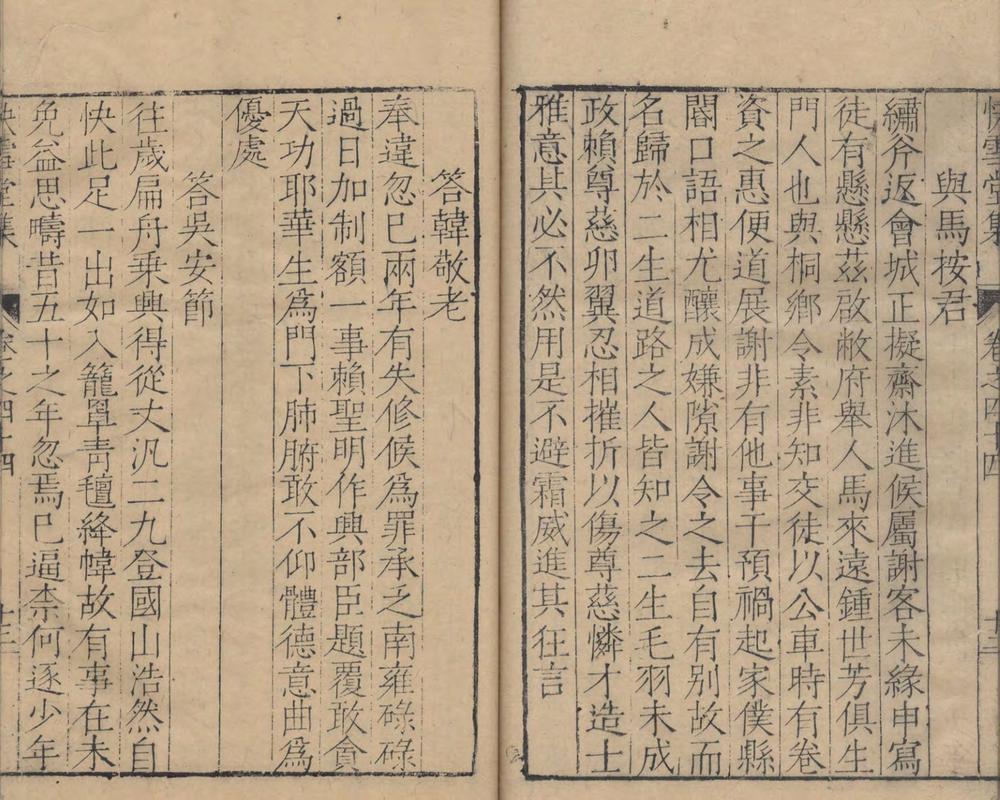 快雪堂集
卷之四十四
十三
與馬按君
繡斧返會城正擬齋沐進候屬謝客未緣申寫
徒有懸懸茲啟敝府舉人馬來遠鍾世芳俱生
門人也與桐鄉令素非知交徒以公車時有卷
資之惠便道展謝非有他事干預禍起家僕縣
閽口語相尤釀成嫌隙謝令之去自有別故而
名歸於二生道路之人皆知之二生毛羽未成
政賴尊慈卵翼忍相摧折以傷尊慈憐才造士
雅意其必不然用是不避霜威進其狂言
答韓敬老
奉違忽已兩年有失修候為罪承乏南雍碌碌
過日加制額一事賴聖明作興部臣題覆敢貪
天功耶華生為門下肺腑敢不仰體德意曲為
優處
答吳安節
往歲扁舟乘興得從丈汎二九登國山浩然自
快此足一出如入籠罩青氊絳幃故有事在未
免益思疇昔五十之年忽焉已逼柰何逐少年
快雪堂集
卷之四十四
十三